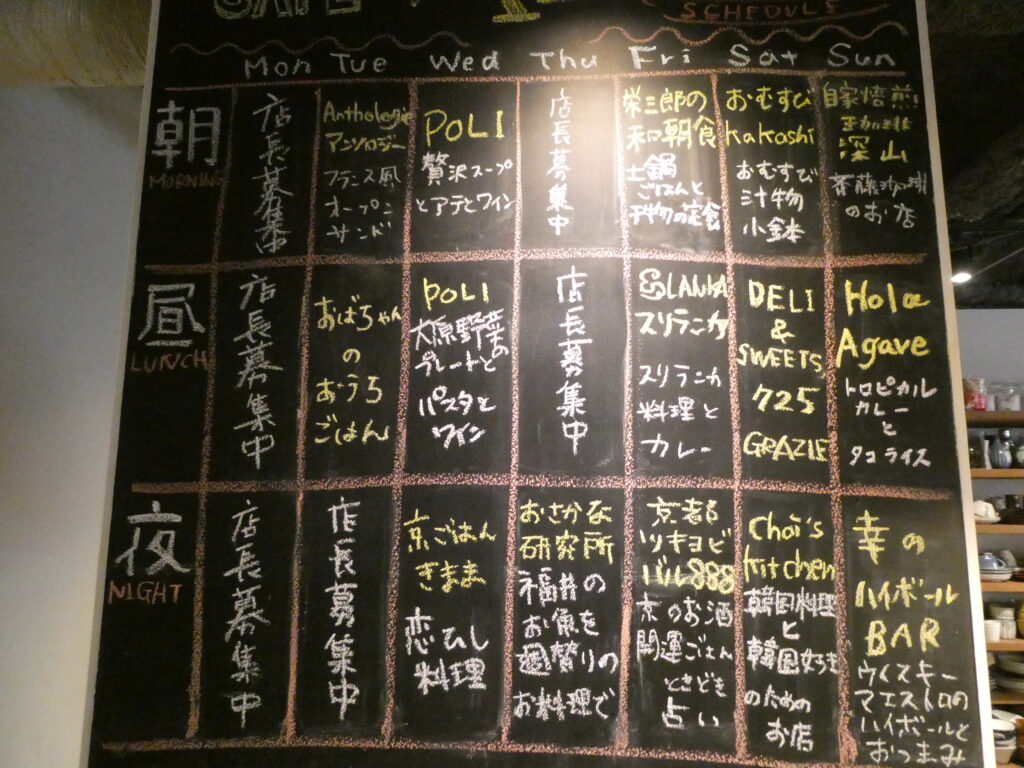 CAFE
SCHEDULE
Mon Tue Wed Thu Fri Sat Sun
朝
MORNING
店長募集中
Anthologie
アンソロジー
フランス風
オープン
サンド
POLI
贅沢スープ
とアテとワイン
店長募集中
栄三郎の
和朝食
土鍋
ごはんと
干物の定食
おむすび
kakashi
おむすび
汁物
小鉢
自家焙煎
珈琲
深山
斎藤珈琲
のお店
昼
LUNCH
店長募集中
おばちゃん
の
おうち
ごはん
POLI
大原野菜の
プレートと
パスタと
ワイン
店長募集中
LANKA
スリランカ
スリランカ
料理と
カレー
DELI
&
SWEETS,
725
GRAZIE
Hola
Agave
トロピカル
カレー
と
タコライス
夜
NIGHT
店長募集中
店長募集中
京ごはん
ぎまま
恋ひし
料理
おさかな
研究所
福井の
お魚を
週替りの
お料理で
京都
ツキヨビ
バル888
京のお酒
開運ごはん
ときどき
占い
Choi's
kitchen
韓国料理
と
韓国好き
のための
お店
幸の
ハイボール
BAR
ウイスキー
マエストロの
ハイボールと
おつまみ